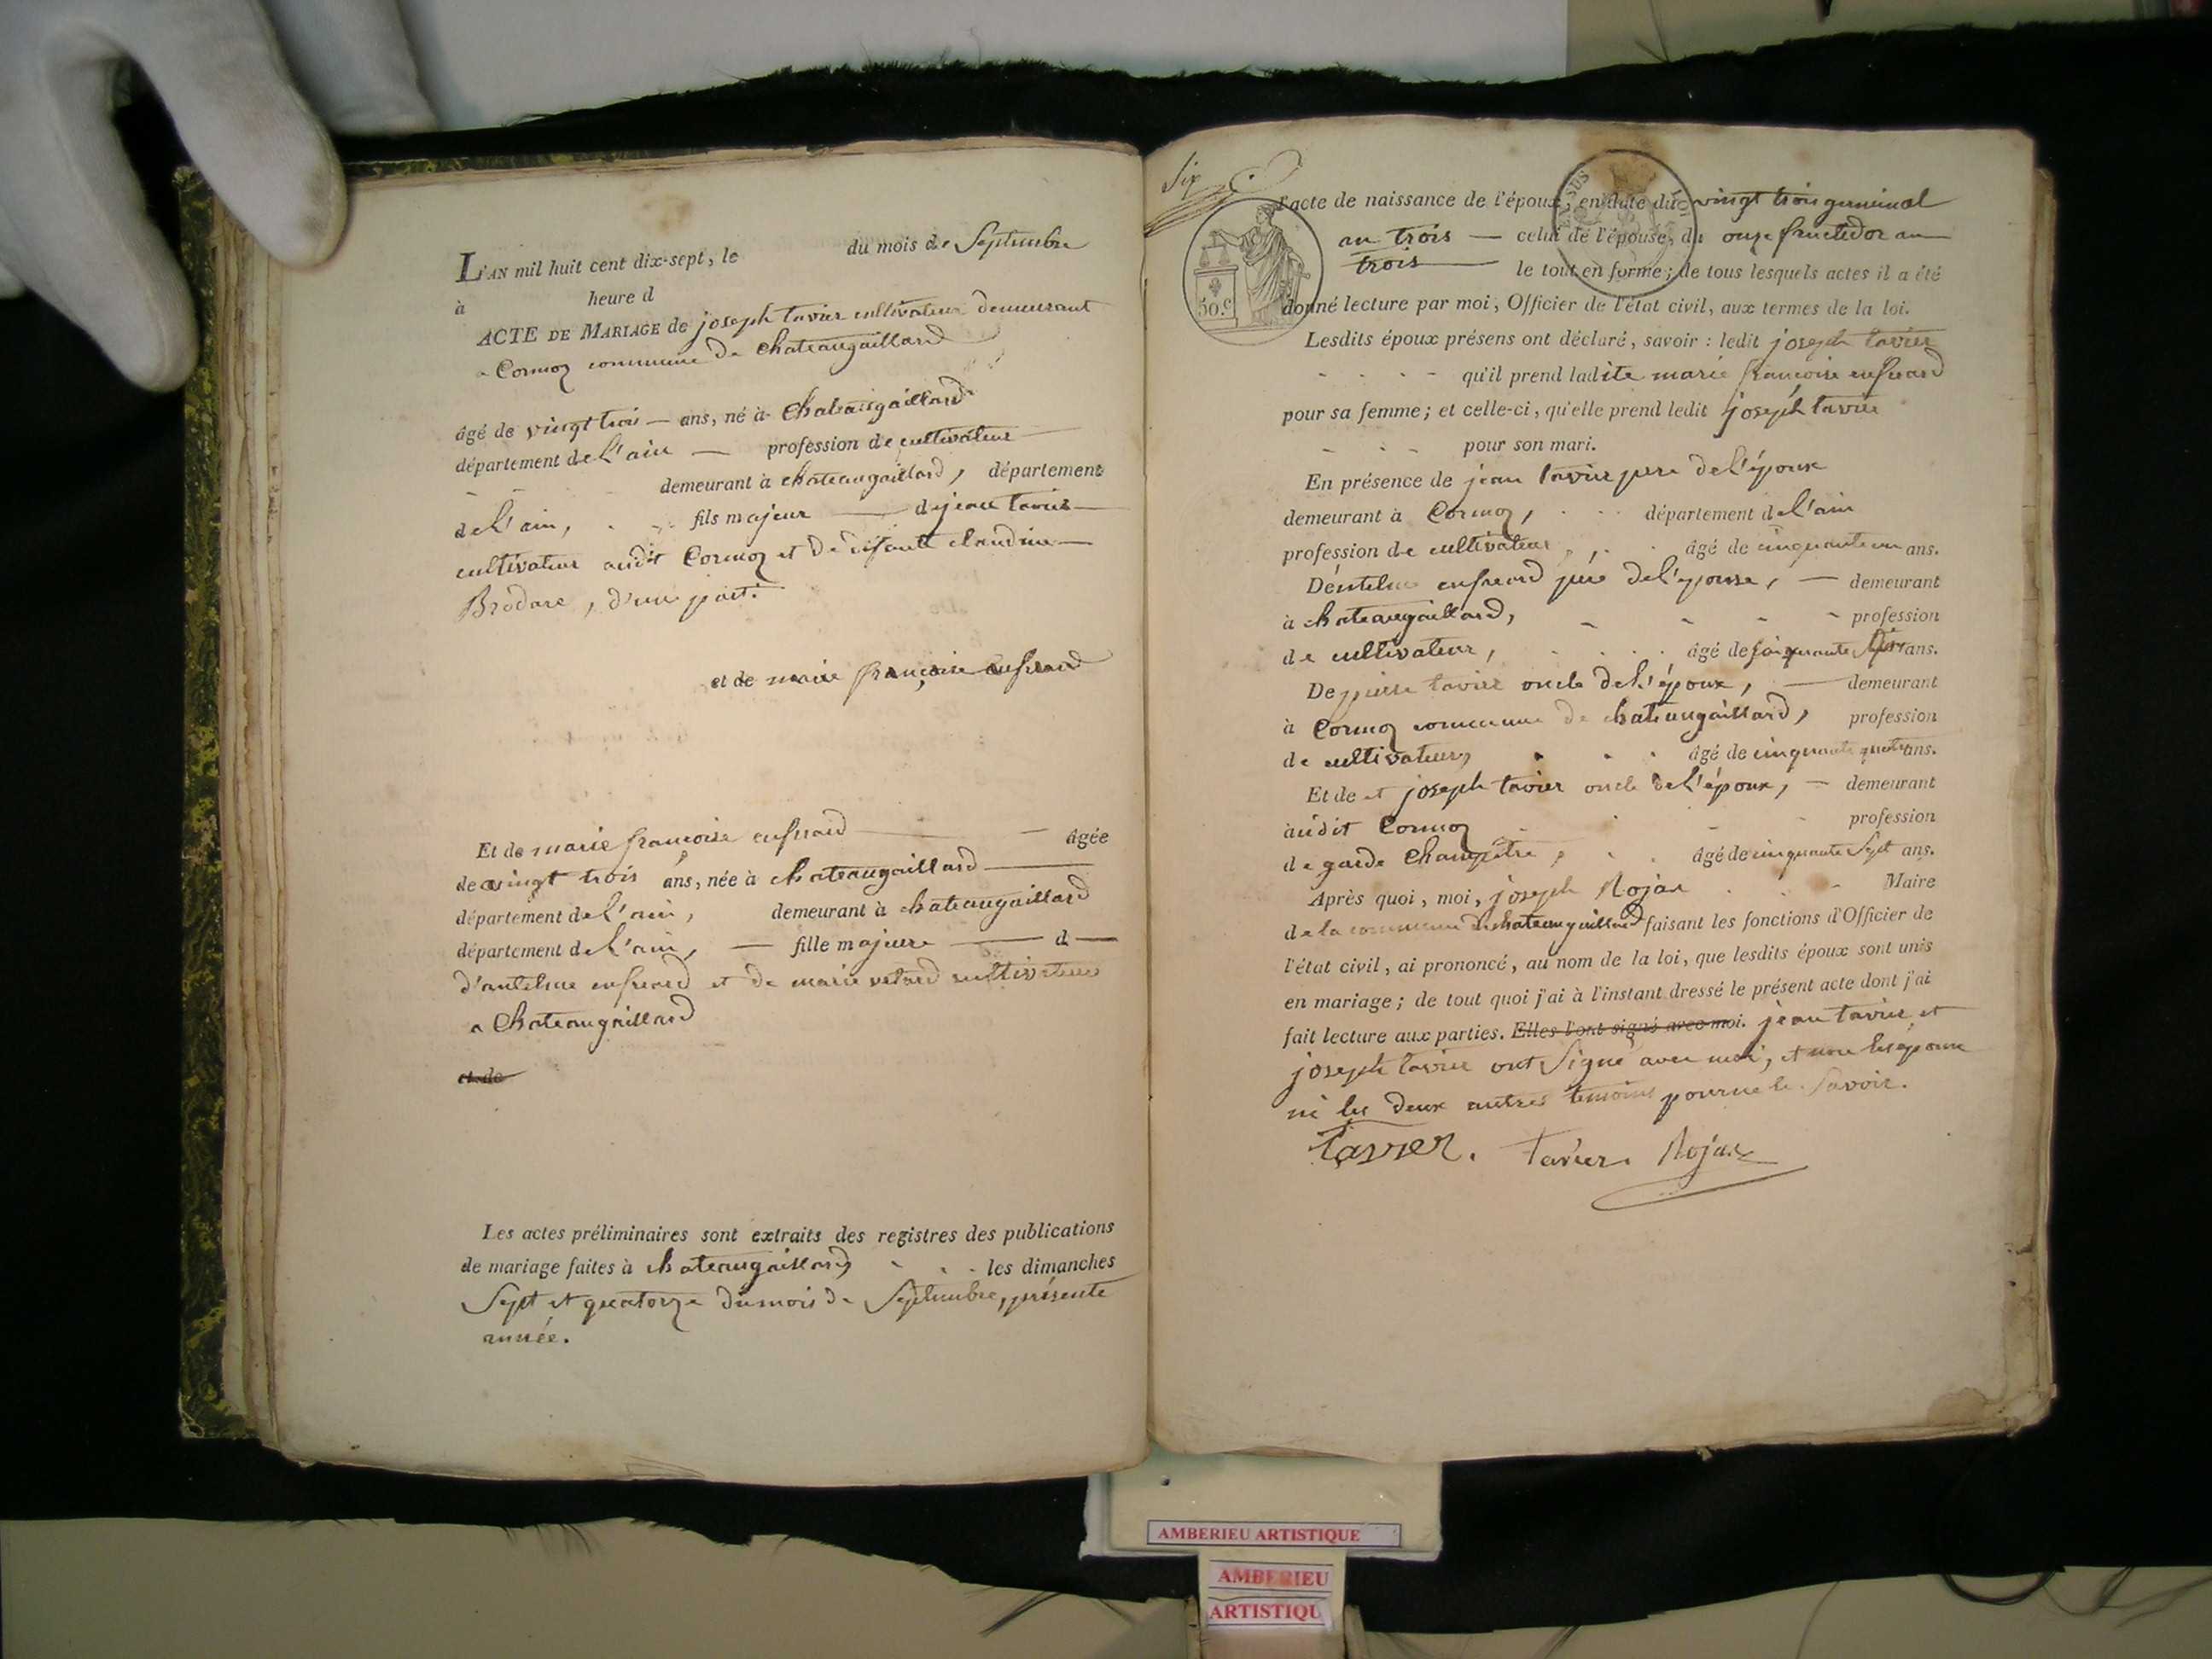 L'AN mil huit cent dix-sept, le du mois de Septembre
à heure d
ACTE DE MARIAGE de joseph tavier cultivateur demeurant
a Cormoz commune de chateaugaillard
âgé de vingt trois — ans, né à Chateaugaillard
département de L'ain — profession de cultivateur
demeurant à chateaugaillard, département
de L'ain, fils majeur — de jean tavier —
cultivateur audit Cormoz et de défunte claudine —
Brodare, d'une part.
et de marie françoise enfrard
Et de marie francoise enfrard — âgée
de vingt trois ans, née à chateaugaillard —
département de L'ain, demeurant à chateaugaillard
département de L'ain, — fille majeure — d —
d'antelme enfrard et de marie vetard cultivateurs
a Chateaugaillard
et de
Les actes préliminaires sont extraits des registres des publications
de mariage faites à chateaugaillard, les dimanches
Sept et quatorze du mois de Septembre, présente
année.
Six
50.c
l'acte de naissance de l'époux, en date du vingt trois germinal
an trois — celui de l'épouse, du onze fructidor an
trois — le tout en forme; de tous lesquels actes il a été
donné lecture par moi, Officier de l'état civil, aux termes de la loi.
Lesdits époux présens ont déclaré, savoir: ledit joseph tavier
qu'il prend ladite marie francoise enfrard
pour sa femme; et celle-ci, qu'elle prend ledit joseph tavier
pour son mari.
En présence de jean tavier pere de L'époux
demeurant à Cormoz, département de L'ain
profession de cultivateur, âgé de cinquante un ans.
D'entelme enfrard père de L'epouse, — demeurant
à chateaugaillard, profession
de cultivateur, âgé de ans.
De pierre tavier oncle de L'époux, — demeurant
à Cormoz commune de chateaugaillard, profession
de cultivateur, âgé de cinquante quatre ans.
Et de et joseph tavier oncle de L'époux, — demeurant
audit Cormoz profession
de garde Champêtre, âgé de cinquante Sept ans.
Après quoi, moi, joseph Rojat Maire
de la commune de chateaugaillard faisant les fonctions d'Officier de
l'état civil, ai prononcé, au nom de la loi, que lesdits époux sont unis
en mariage; de tout quoi j'ai à l'instant dressé le présent acte dont j'ai
fait lecture aux parties. Elles l'ont signé avec moi. jean tavier et
joseph tavier ont Signé avec moi, et non les époux
ni les deux autres temoins pour ne le Savoir.
tavier. Tavier. Rojat
AMBERIEU ARTISTIQUE
AMBERIEU
ARTISTIQU